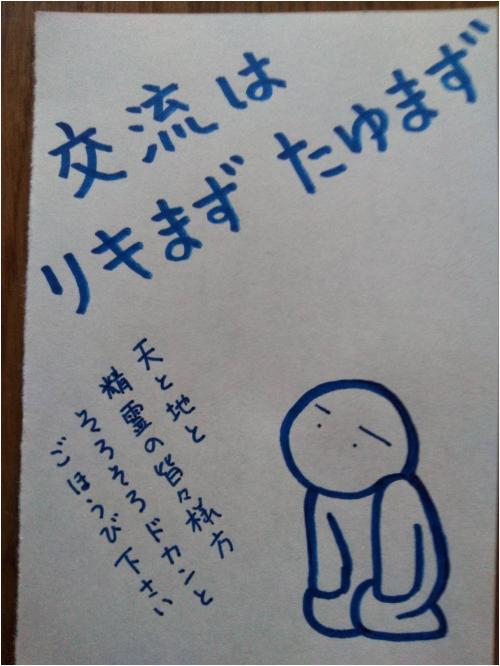 交流は
リキまず たゆまず
天と地と
精霊の皆々様方
そろそろドカンと
ごほうび下さい